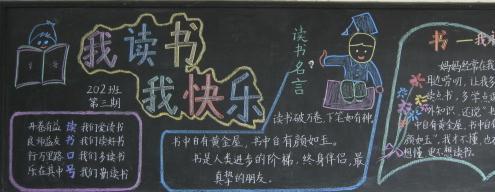 我读书
我快乐
202班
第三期
开卷有益 读 我们爱读书
良师益友 书 我们读好书
行万里路 口 我们多读书
乐在其中 号 我们勤读书
读书名言
读书破万卷,下笔如有神
书中自有黄金屋,书中自有颜如玉。
书是人类进步的阶梯,终身伴侣,最
真挚的朋友。
书一我
妈妈经常在我
让我多
读点书,多学点
外知识,还说“
中自有黄金屋,书
颜如玉”,我才不懂,也
想懂